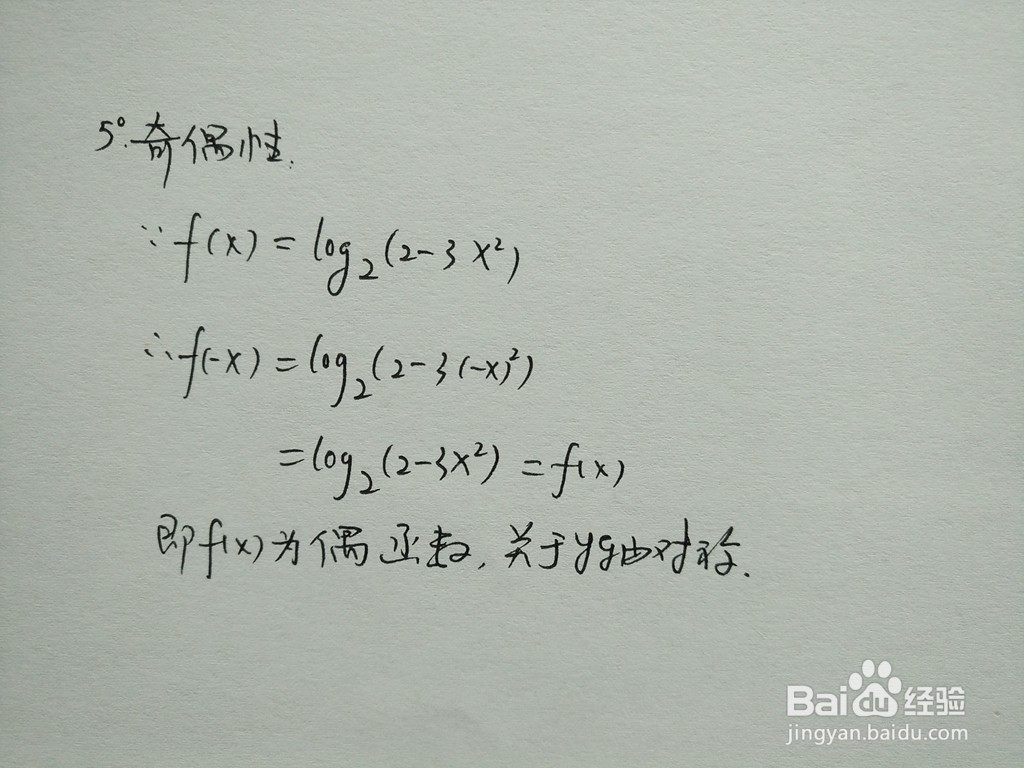 5°.奇偶性.
∵f(x)=log₂(2-3x²)
∴f(-x)=log₂(2-3(-x)²)
=log₂(2-3x²)=f(x)
即f(x)为偶函数,关于y轴对称.
Baidu经验
jingyan.baidu.com